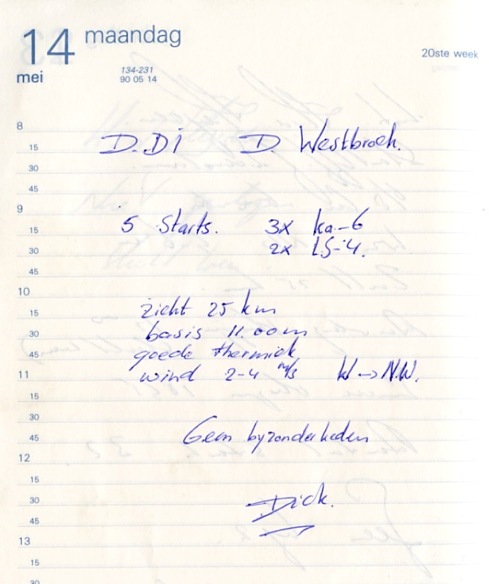 14 maandag
mei
134-231
90 05 14
20ste week
8
15
D.Di D. Westbroek.
30
45
9
5 Starts. 3x Ka-6
15
2x LS-4.
30
45
10
zicht 25 km
15
basis 1100m
30
goede thermiek
45
wind 2-4 m/s W->N.W.
11
15
30
Geen byzonderheden
45
12
15
Dick.
30
45
13
15
30